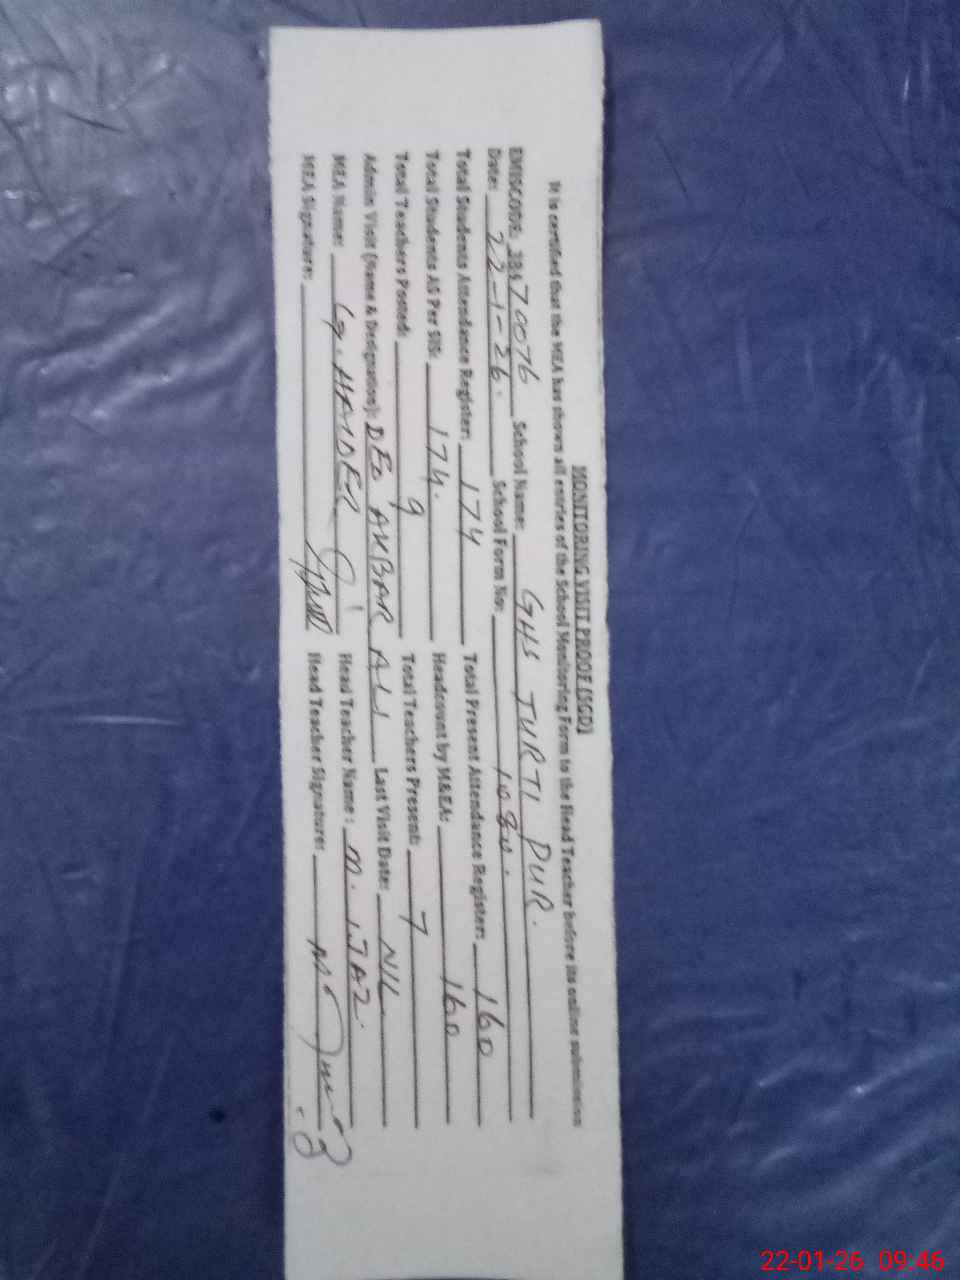 MONITORING VISIT PROOF (SGD)
It is certified that the MEA has shown all entries of the School Monitoring Form to the Head Teacher before its online submission
EMISCODE: 38470076 School Name: GHS TURTI PUR.
Date: 22-1-26. School Form No: 1080.
Total Students Attendance Register: 174 Total Present Attendance Register: 160
Total Students AS Per SIS: 174. Headcount by M&EA: 160
Total Teachers Posted: 9 Total Teachers Present: 7
Admin Visit (Name & Designation): DEO AKBAR ALI Last Visit Date: NIL
MEA Name: HAIDER Head Teacher Name: M. IJAZ.
MEA Signature: Head Teacher Signature:
22-01-26 09:46